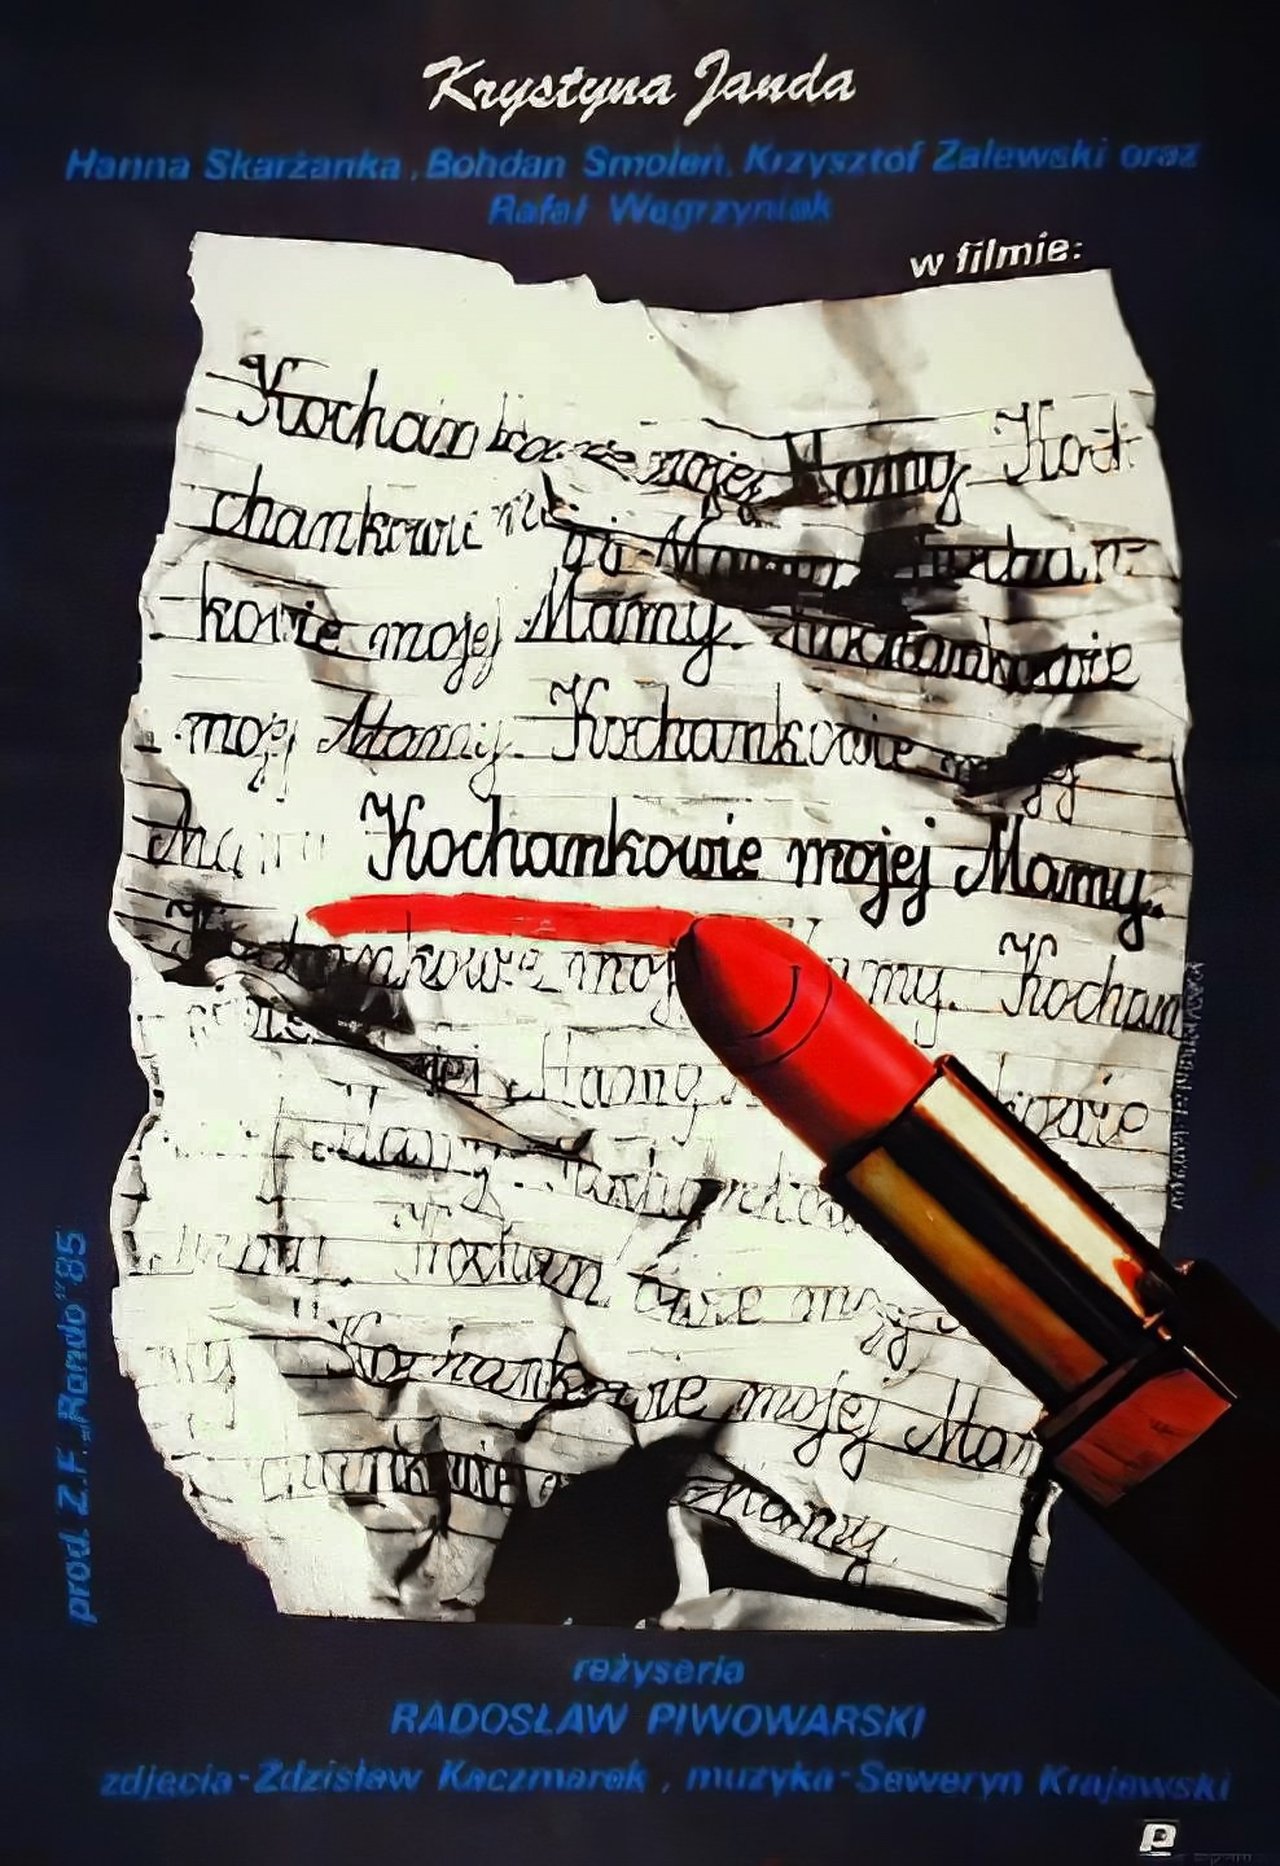 Krystyna Janda
Hanna Skarżanka, Bohdan Smoleń, Krzysztof Zalewski oraz
Rafał Węgrzyniak
w filmie:
Kocham kowie mojej Mamy. Koch
chankowie mojej Mamy. Kochan
kowie mojej Mamy. Kochankowie
mojej Mamy. Kochankowie mojej
Mamy Kochankowie mojej Mamy.
Kochankowie moj Mamy. Kochan
Mamy kowie
Mamy.
Kochan kowie mojej
Kochankowie mojej Mam
kowie Mamy
prod. Z.F. „Rondo” 85
reżyseria
RADOSŁAW PIWOWARSKI
zdjęcia-Zdzisław Kaczmarek, muzyka-Seweryn Krajewski
P